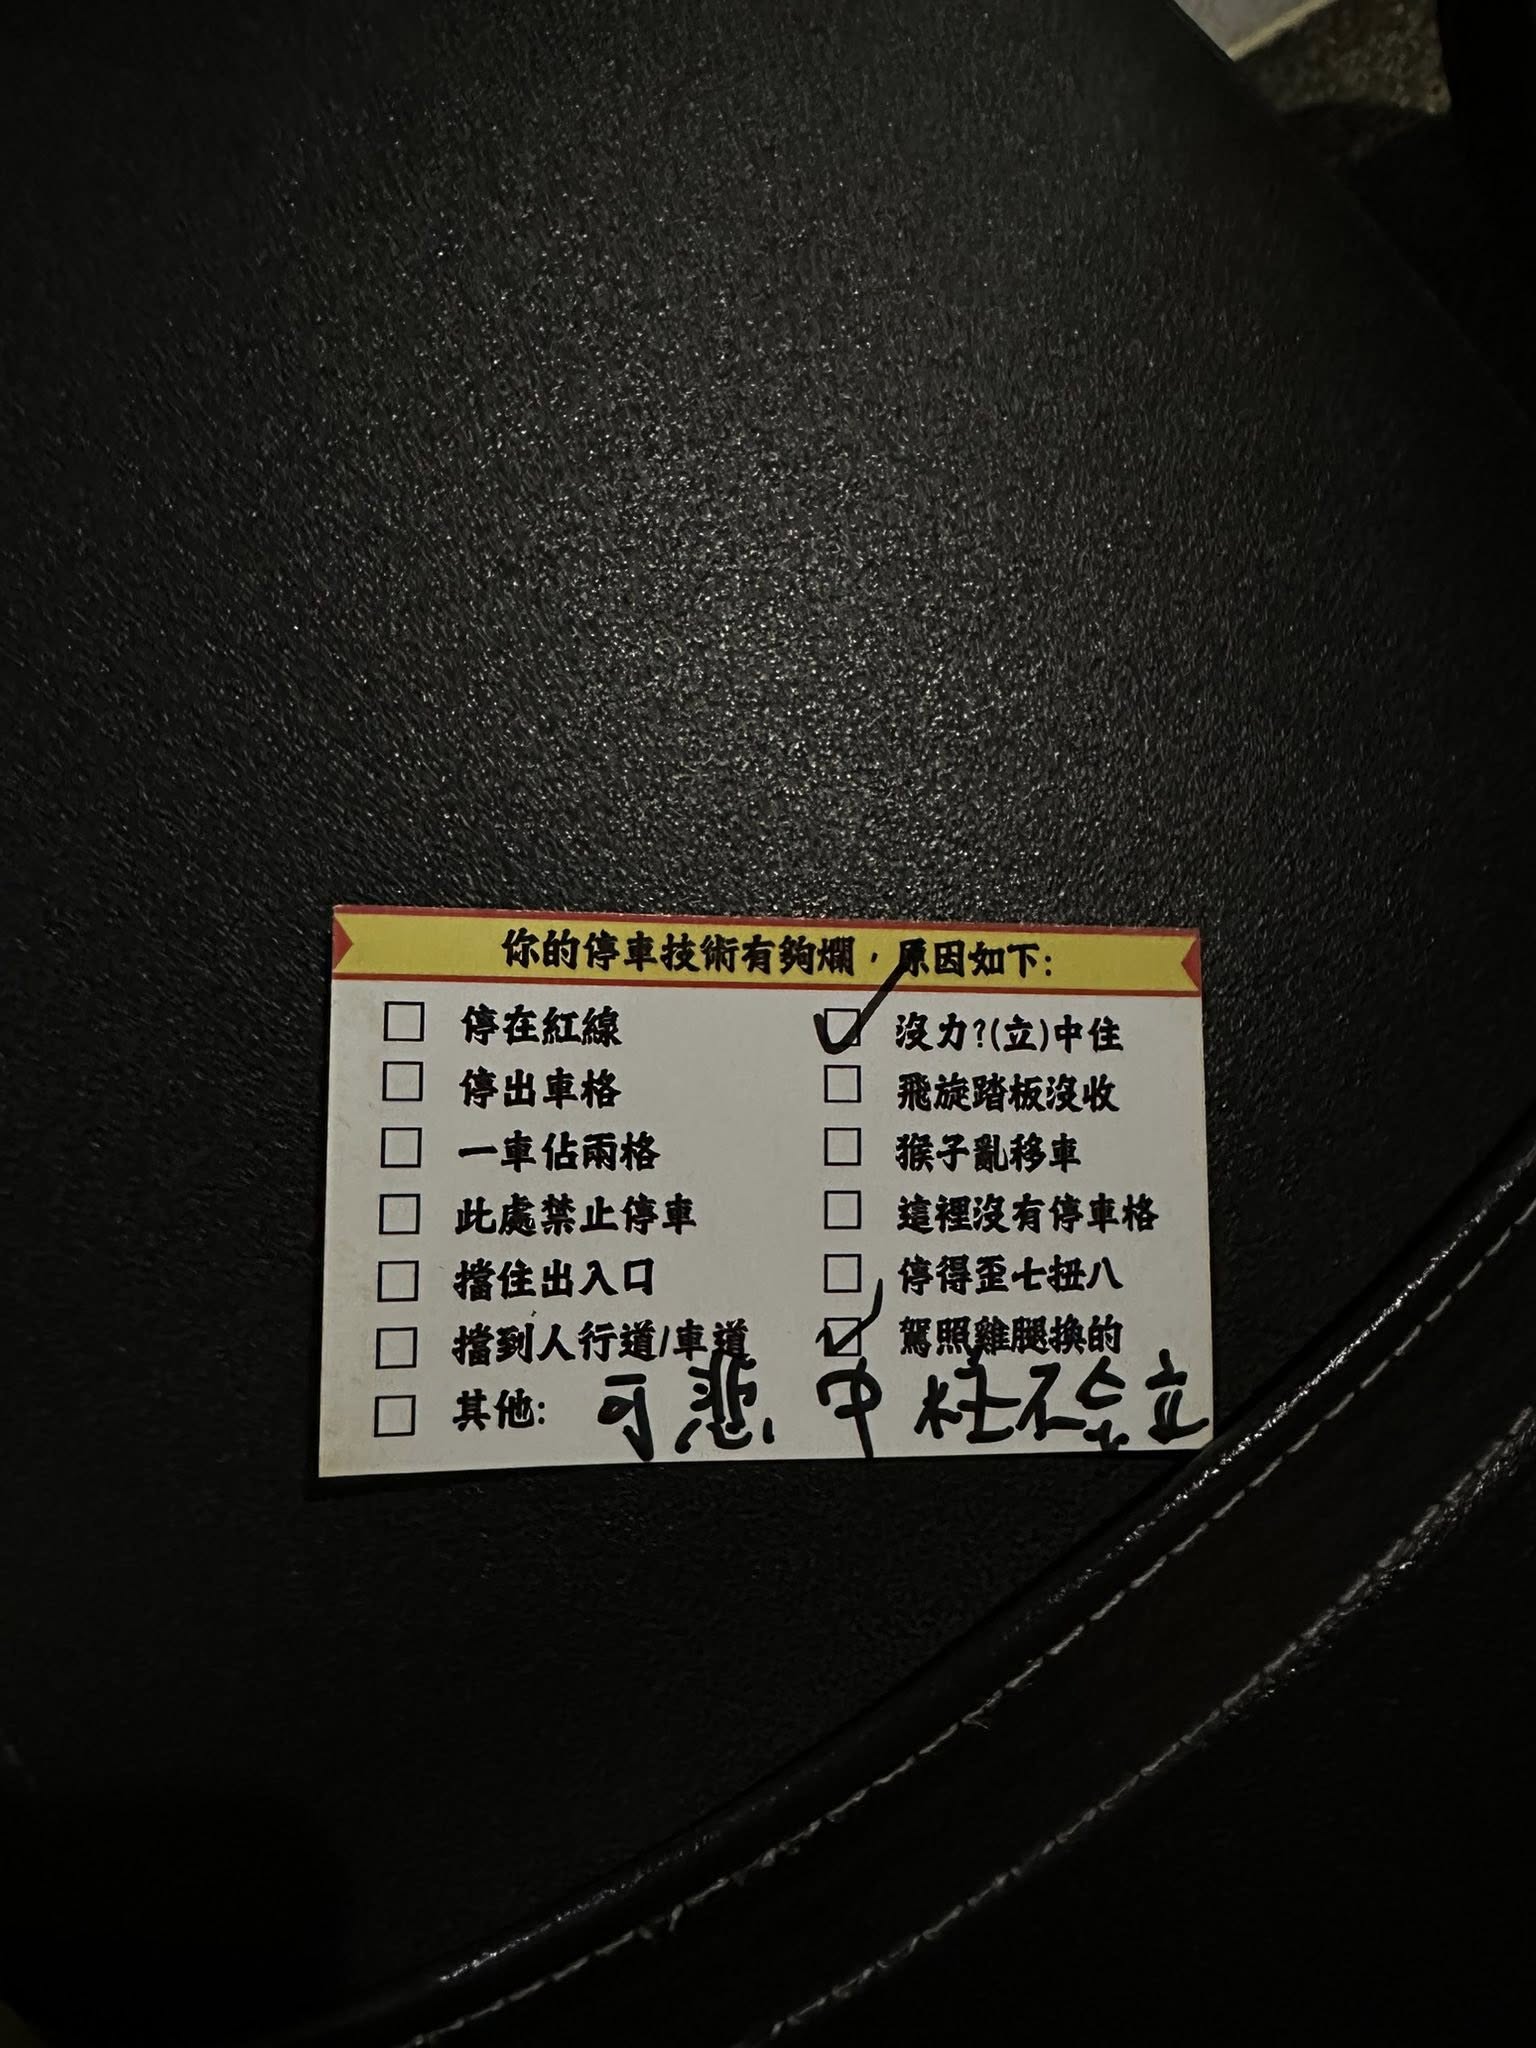 你的停車技術有夠爛，原因如下:
停在紅線
停出車格
一車佔兩格
此處禁止停車
擋住出入口
擋到人行道/車道
其他: 可悲 中柱不会立
沒力?(立)中住
飛旋踏板沒收
猴子亂移車
這裡沒有停車格
停得歪七扭八
駕照雞腿換的